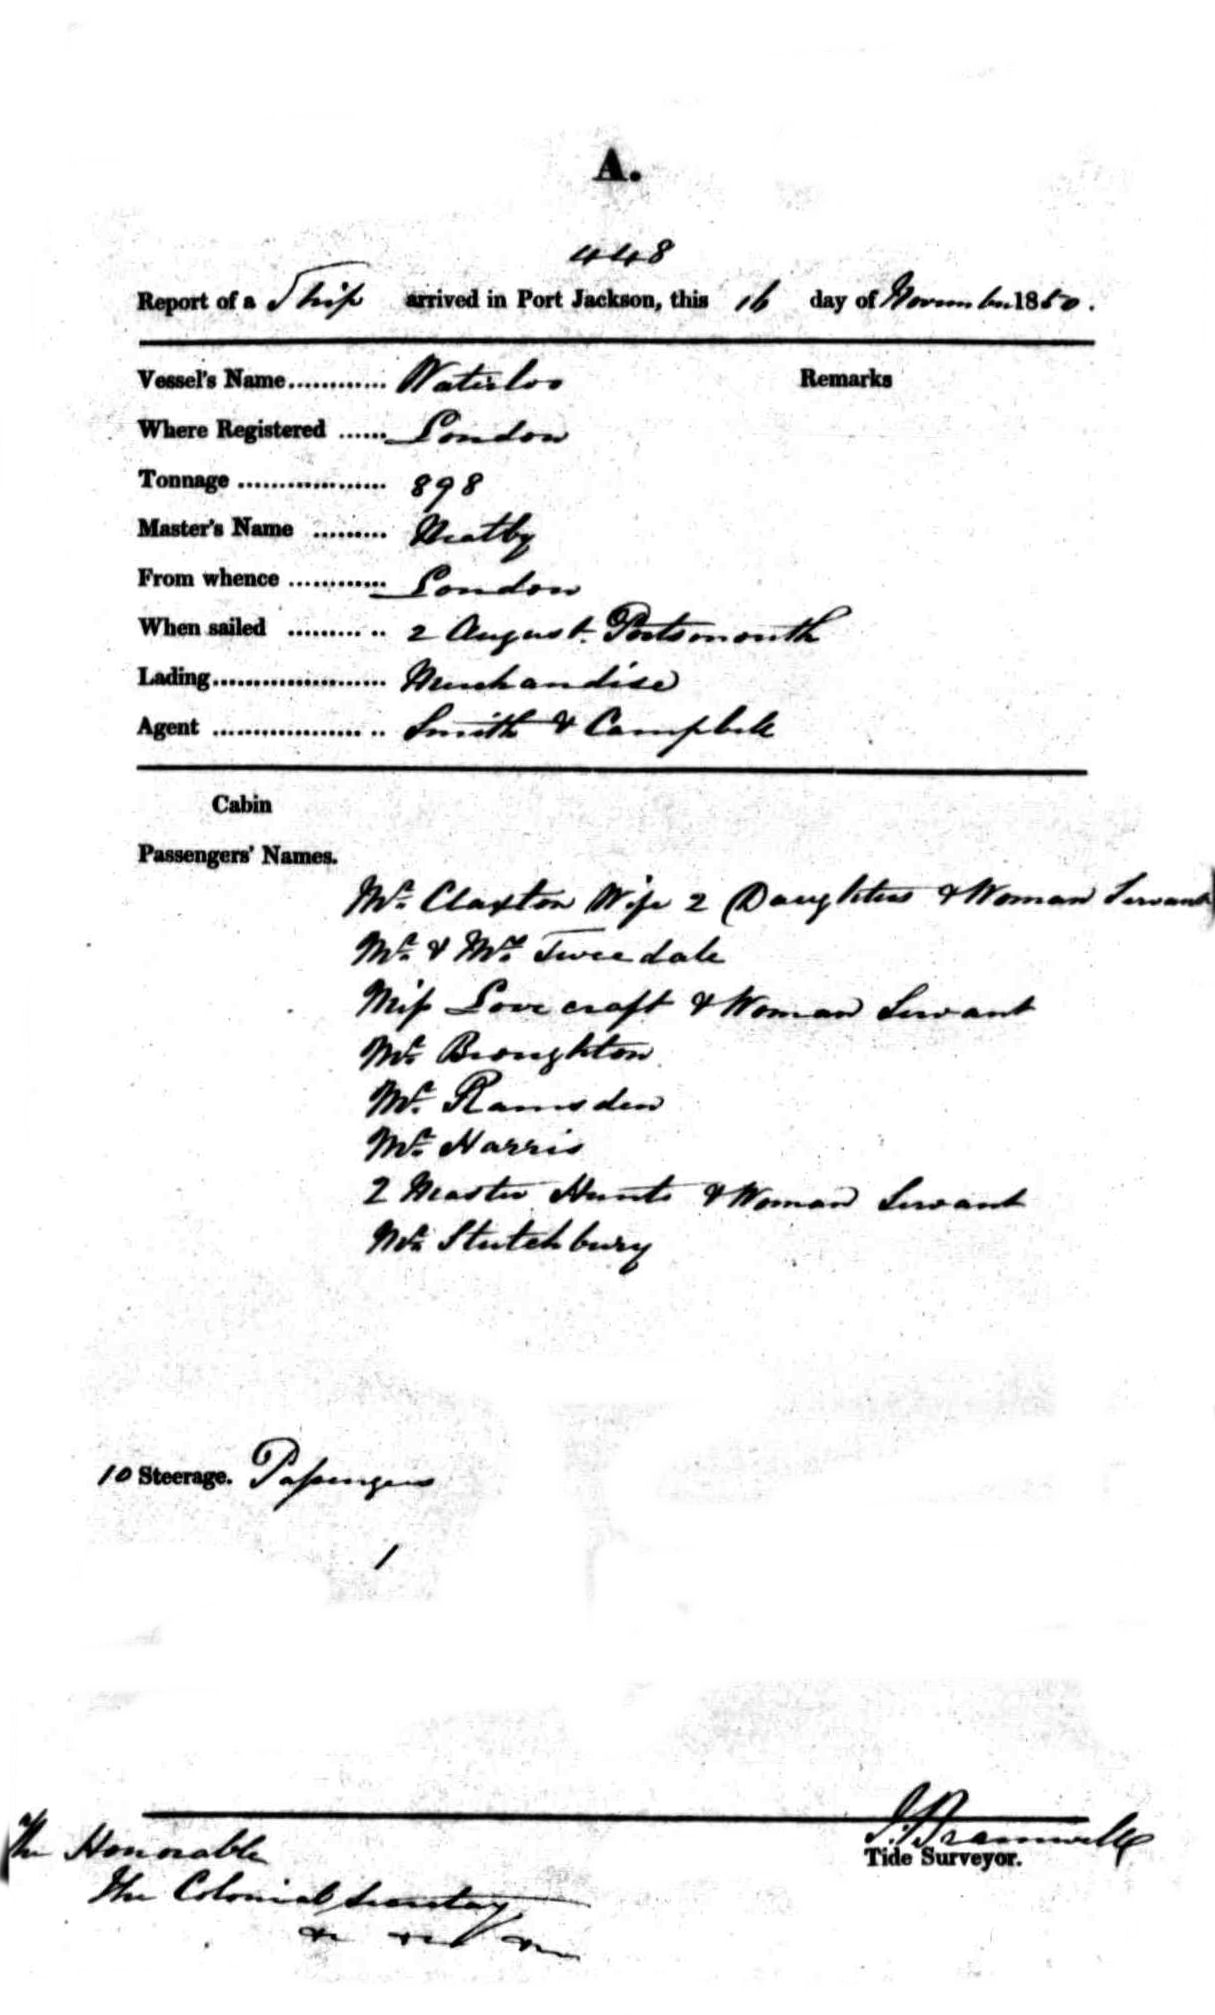 A.
448
Report of a Ship arrived in Port Jackson, this 16 day of November 1850.
Vessel's Name............ Waterloo Remarks
Where Registered ...... London
Tonnage .................. 898
Master's Name ......... Neatby
From whence ............ London
When sailed ........... 2 August. Portsmouth
Lading..................... Merchandise
Agent .................... Smith & Campbell
Cabin
Passengers' Names.
Mr. Claxton Wife 2 Daughters & Woman Servant
Mr. & Mrs. Tweedale
Miss Lovecraft & Woman Servant
Mr. Broughton
Mr. Ramsden
Mr. Harris
2 Master Hunts & Woman Servant
Mr. Stutchbury
10 Steerage. Passengers
1
J. Bramwell
Tide Surveyor.
The Honorable
The Colonial Secretary
&c &c &c